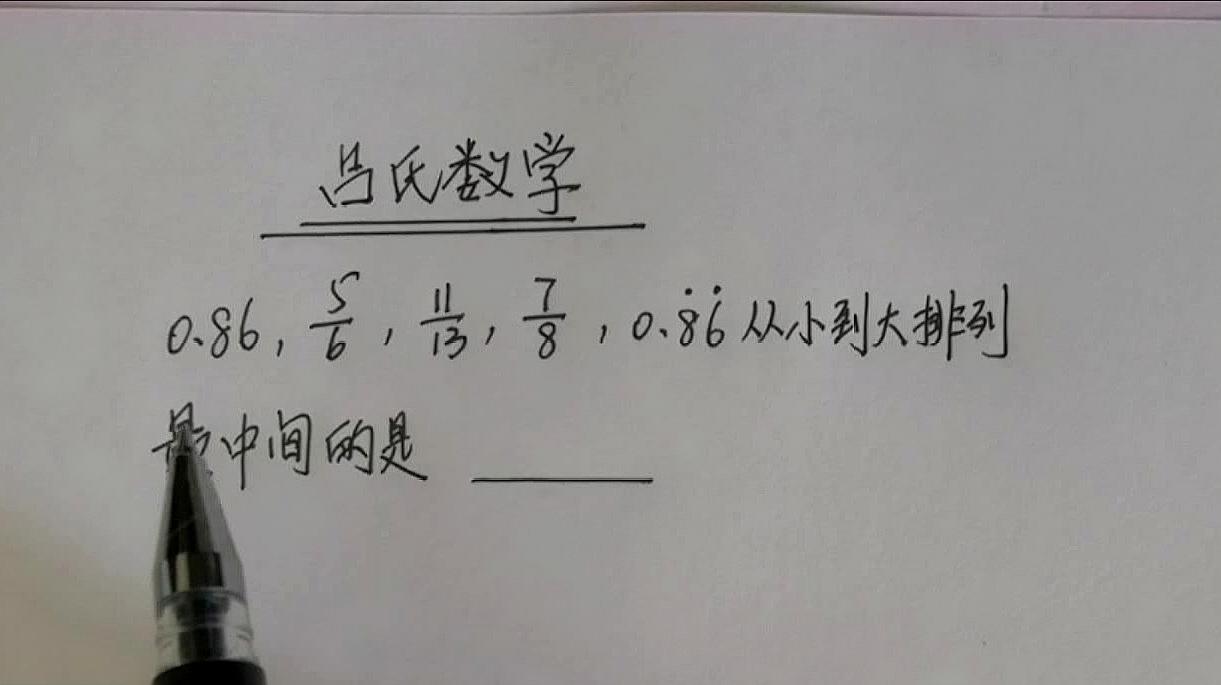 吕氏数学
0.86, 5/6, 11/13, 7/8, 0.8̇6̇ 从小到大排列
最中间的是